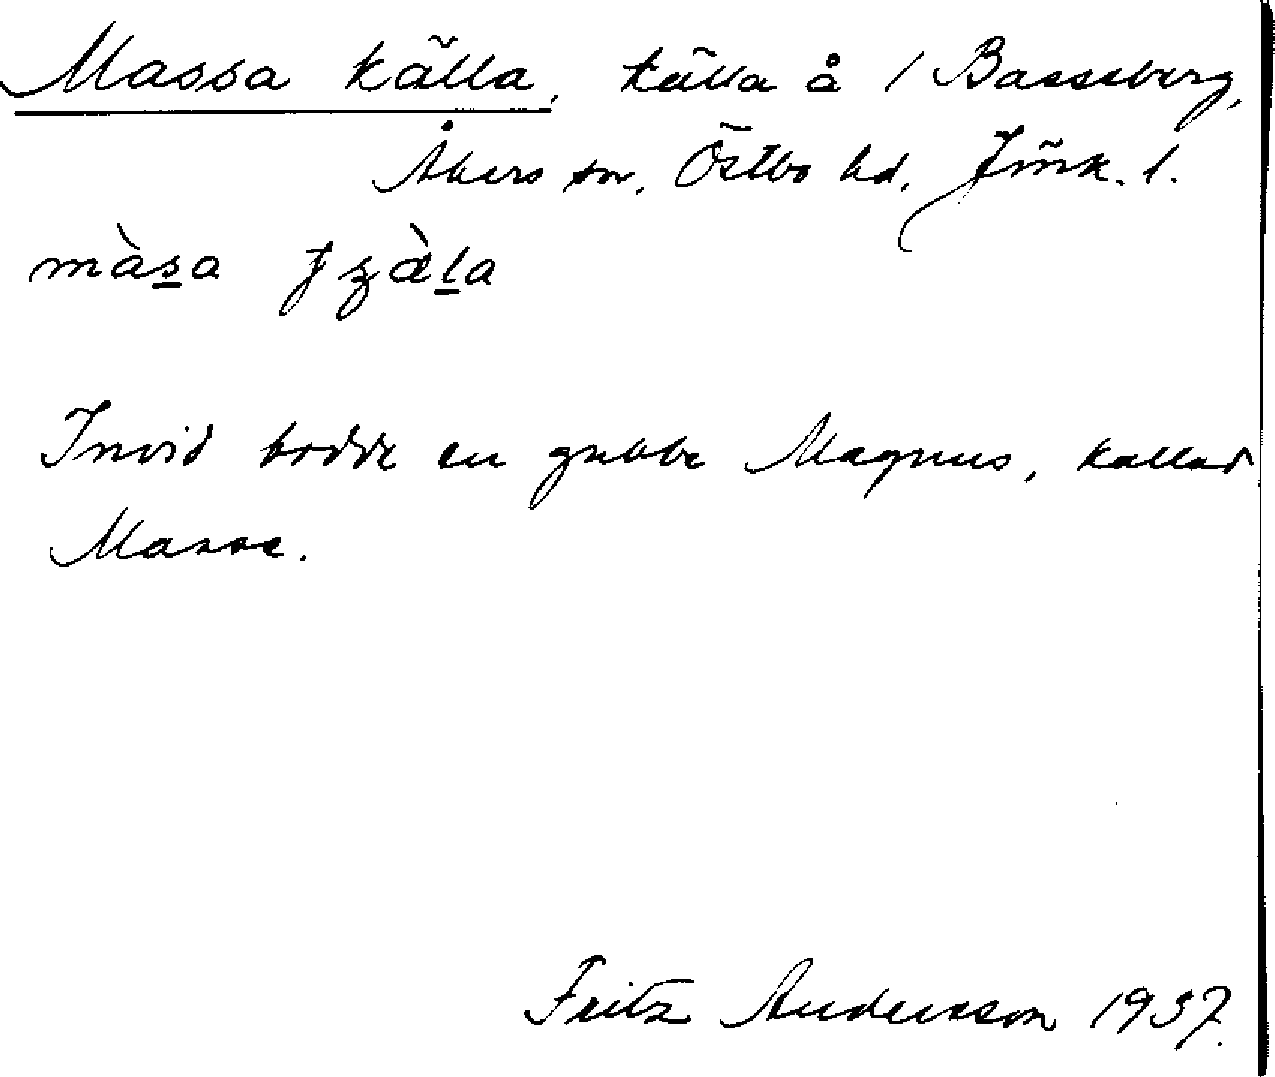 Massa källa, källa å 1 Bassberg,
Åkers sn, Östbo hd, Jönk. l.
màsa ȷʒàla
Invid bodde en gubbe Magnus, kallad
Masse.
Fritz Andersson 1937.